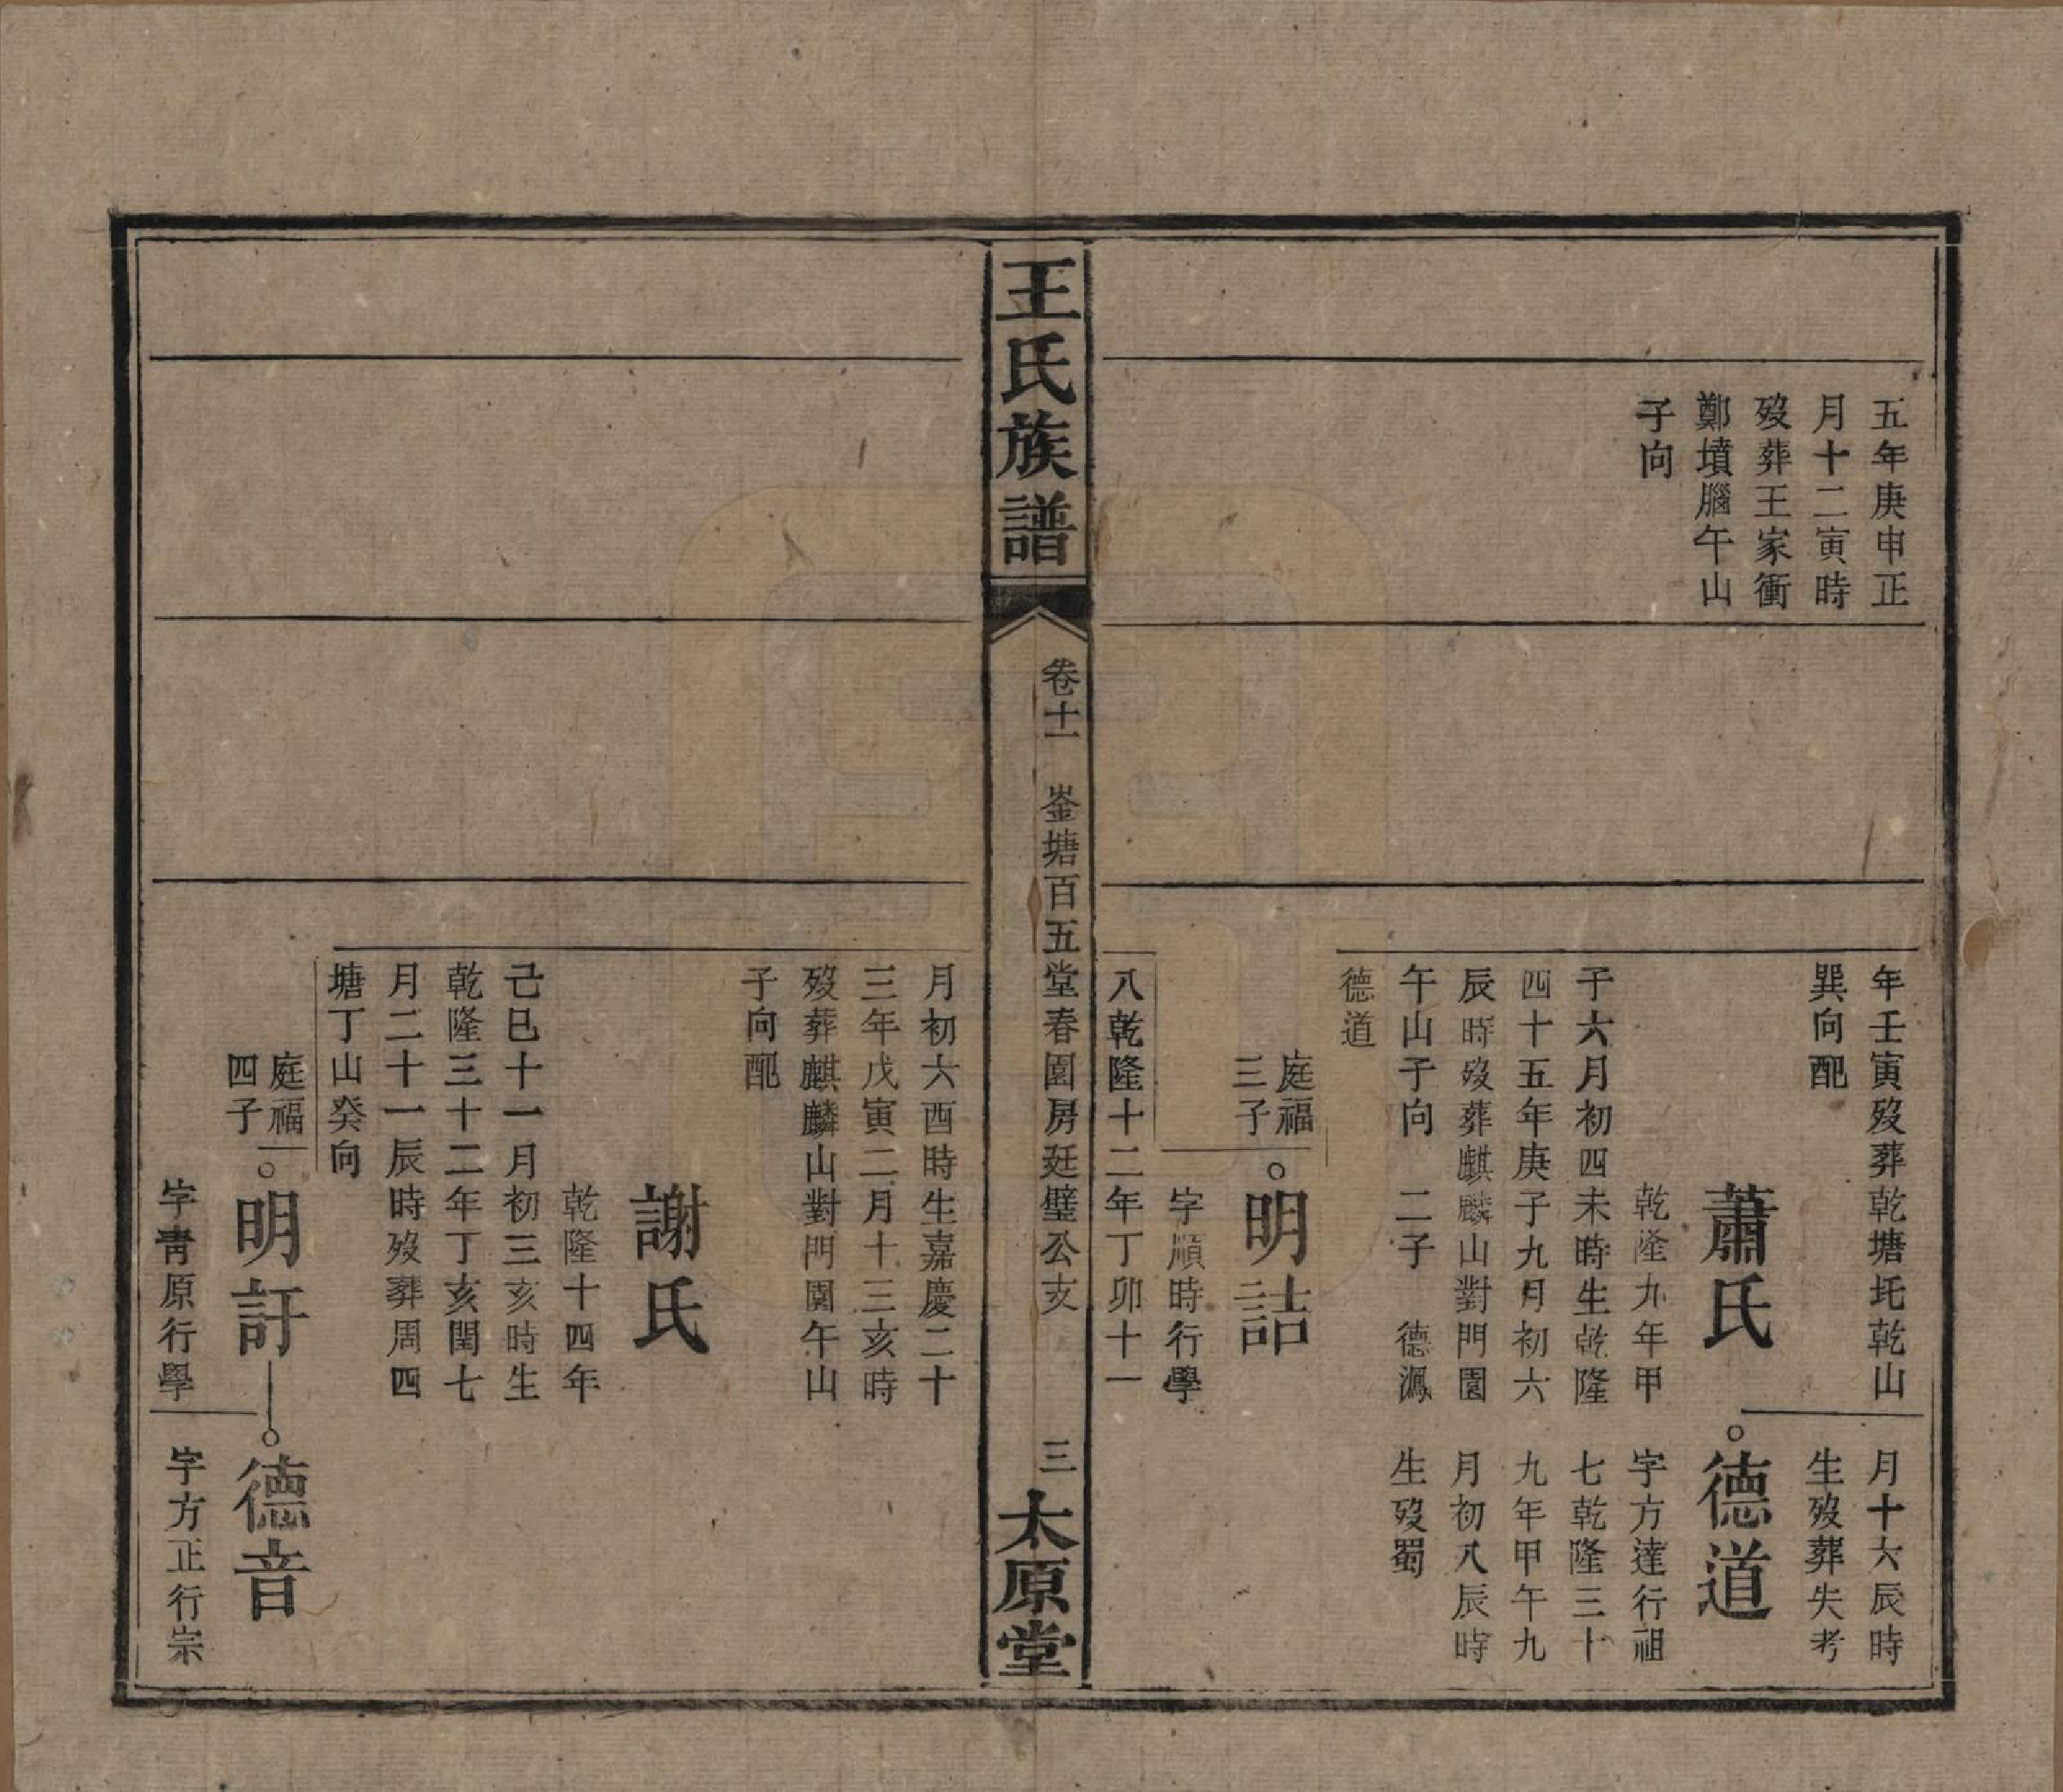 五年庚申正
月十二寅時
歿葬王家衝
鄭墳腦午山
子向
年壬寅歿葬乾塘圫乾山
巽向配
蕭氏
乾隆九年甲
子六月初四未時生乾隆
四十五年庚子九月初六
辰時歿葬麒麟山對門園
午山子向 二子 德渢
德道
庭福
三子
明詰
字順時行學
八乾隆十二年丁卯十一
月十六辰時
生歿葬失考
德道
字方達行祖
七乾隆三十
九年甲午九
月初八辰時
生歿蜀
王氏族譜
卷十一 崟塘百五堂春園房廷璧公支
三
太原堂
月初六酉時生嘉慶二十
三年戊寅二月十三亥時
歿葬麒麟山對門園午山
子向配
謝氏
乾隆十四年
己巳十一月初三亥時生
乾隆三十二年丁亥閏七
月二十一辰時歿葬周四
塘丁山癸向
庭福
四子
明訏
字靑原行學
德音
字方正行宗